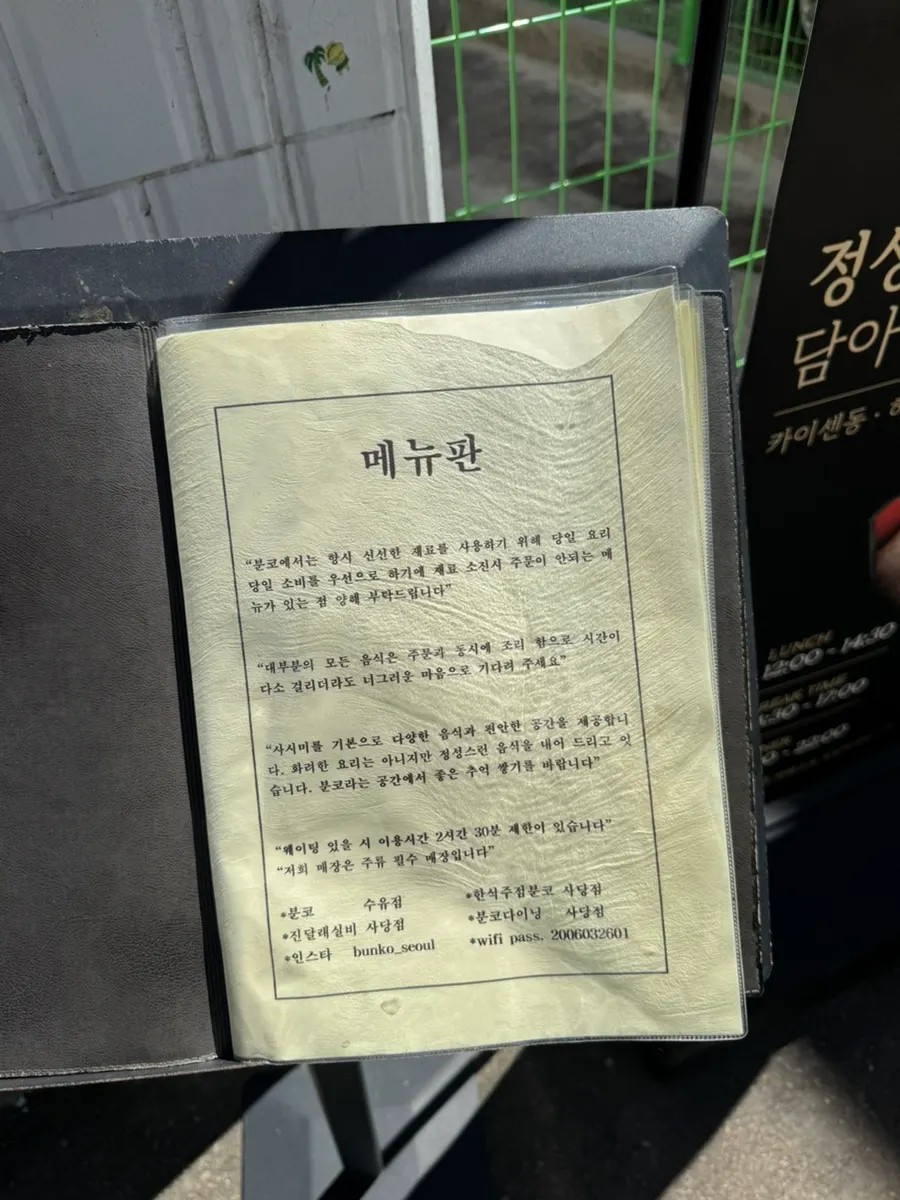 메뉴판
“분코에서는 항시 신선한 재료를 사용하기 위해 당일 요리
당일 소비를 우선으로 하기에 재료 소진시 주문이 안되는 메
뉴가 있는 점 양해 부탁드립니다”
“대부분의 모든 음식은 주문과 동시에 조리 함으로 시간이
다소 걸리더라도 너그러운 마음으로 기다려 주세요”
“사시미를 기본으로 다양한 음식과 편안한 공간을 제공합니
다. 화려한 요리는 아니지만 정성스런 음식을 내어 드리고 잇
습니다. 분코라는 공간에서 좋은 추억 쌓기를 바랍니다”
“웨이팅 있을 시 이용시간 2시간 30분 제한이 있습니다”
“저희 매장은 주류 필수 매장입니다”
*분코 수유점
*진달래실비 사당점
*인스타 bunko_seoul
*한식주점분코 사당점
*분코다이닝 사당점
*wifi pass. 2006032601
정성
담아
카이센동 ·
LUNCH
12:00 - 14:30
TIME
:30 - 17:00
- 22:00